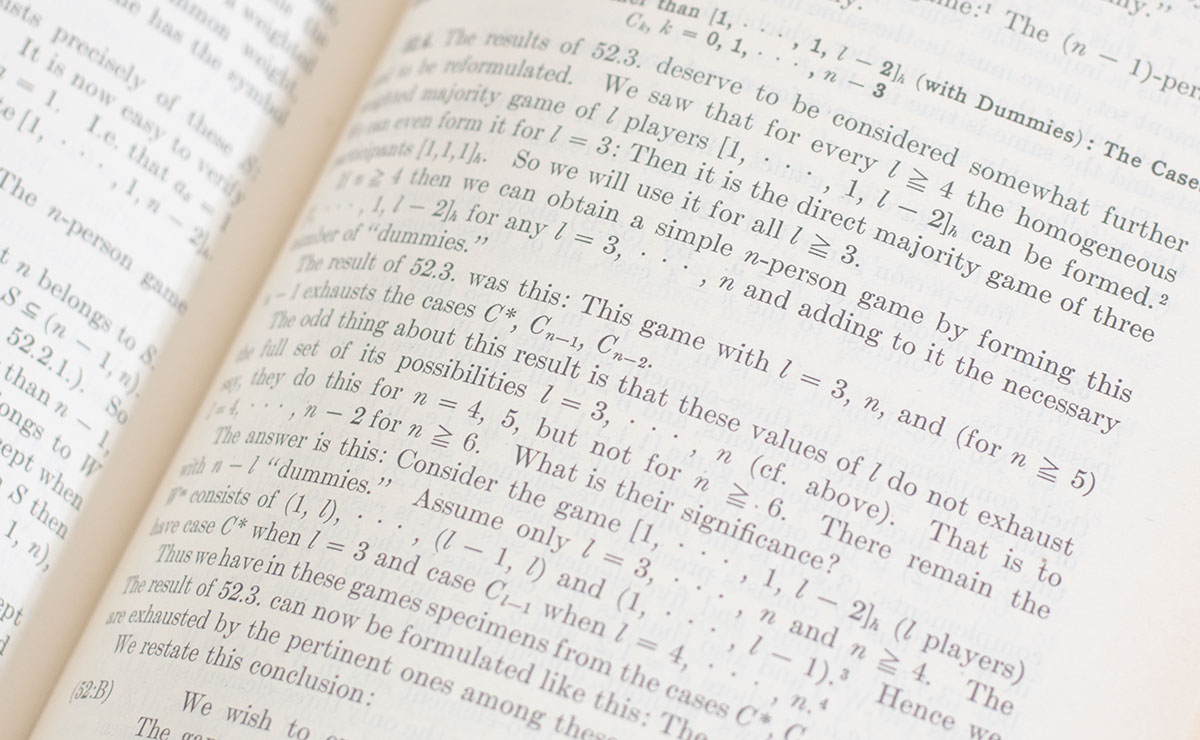 sists precisely of these S:
It is now easy to verify
I.e. that
The n-person game
n belongs to S.
S ⊆ (n − 1, n).
52.2.1.). So
than n − 1,
longs to W
cept when
S then
1, n),
The (n − 1)-per
than [1, · · · , 1, l − 2]ₕ (with Dummies): The Case
Cₖ, k = 0, 1, · · · , n − 3
The results of 52.3. deserve to be considered somewhat further
to be reformulated. We saw that for every l ≧ 4 the homogeneous
weighted majority game of l players [1, · · · , 1, l − 2]ₕ can be formed.²
We can even form it for l = 3: Then it is the direct majority game of three
participants [1,1,1]ₕ. So we will use it for all l ≧ 3.
If n ≧ 4 then we can obtain a simple n-person game by forming this
· · · , 1, l − 2]ₕ for any l = 3, · · · , n and adding to it the necessary
number of “dummies.”
The result of 52.3. was this: This game with l = 3, n, and (for n ≧ 5)
n − 1 exhausts the cases C*, Cₙ₋₁, Cₙ₋₂.
The odd thing about this result is that these values of l do not exhaust
the full set of its possibilities l = 3, · · · , n (cf. above). That is to
say, they do this for n = 4, 5, but not for n ≧ 6. There remain the
l = 4, · · · , n − 2 for n ≧ 6. What is their significance?
The answer is this: Consider the game [1, · · · , 1, l − 2]ₕ (l players)
with n − l “dummies.” Assume only l = 3, · · · , n and n ≧ 4. The
consists of (1, l), · · · , (l − 1, l) and (1, · · · , l − 1).³ Hence we
have case C* when l = 3 and case Cₗ₋₁ when l = 4, · · · , n.⁴
Thus we have in these games specimens from the cases C*, C
The result of 52.3. can now be formulated like this: The
are exhausted by the pertinent ones among these
We restate this conclusion:
(52:B) We wish to
The